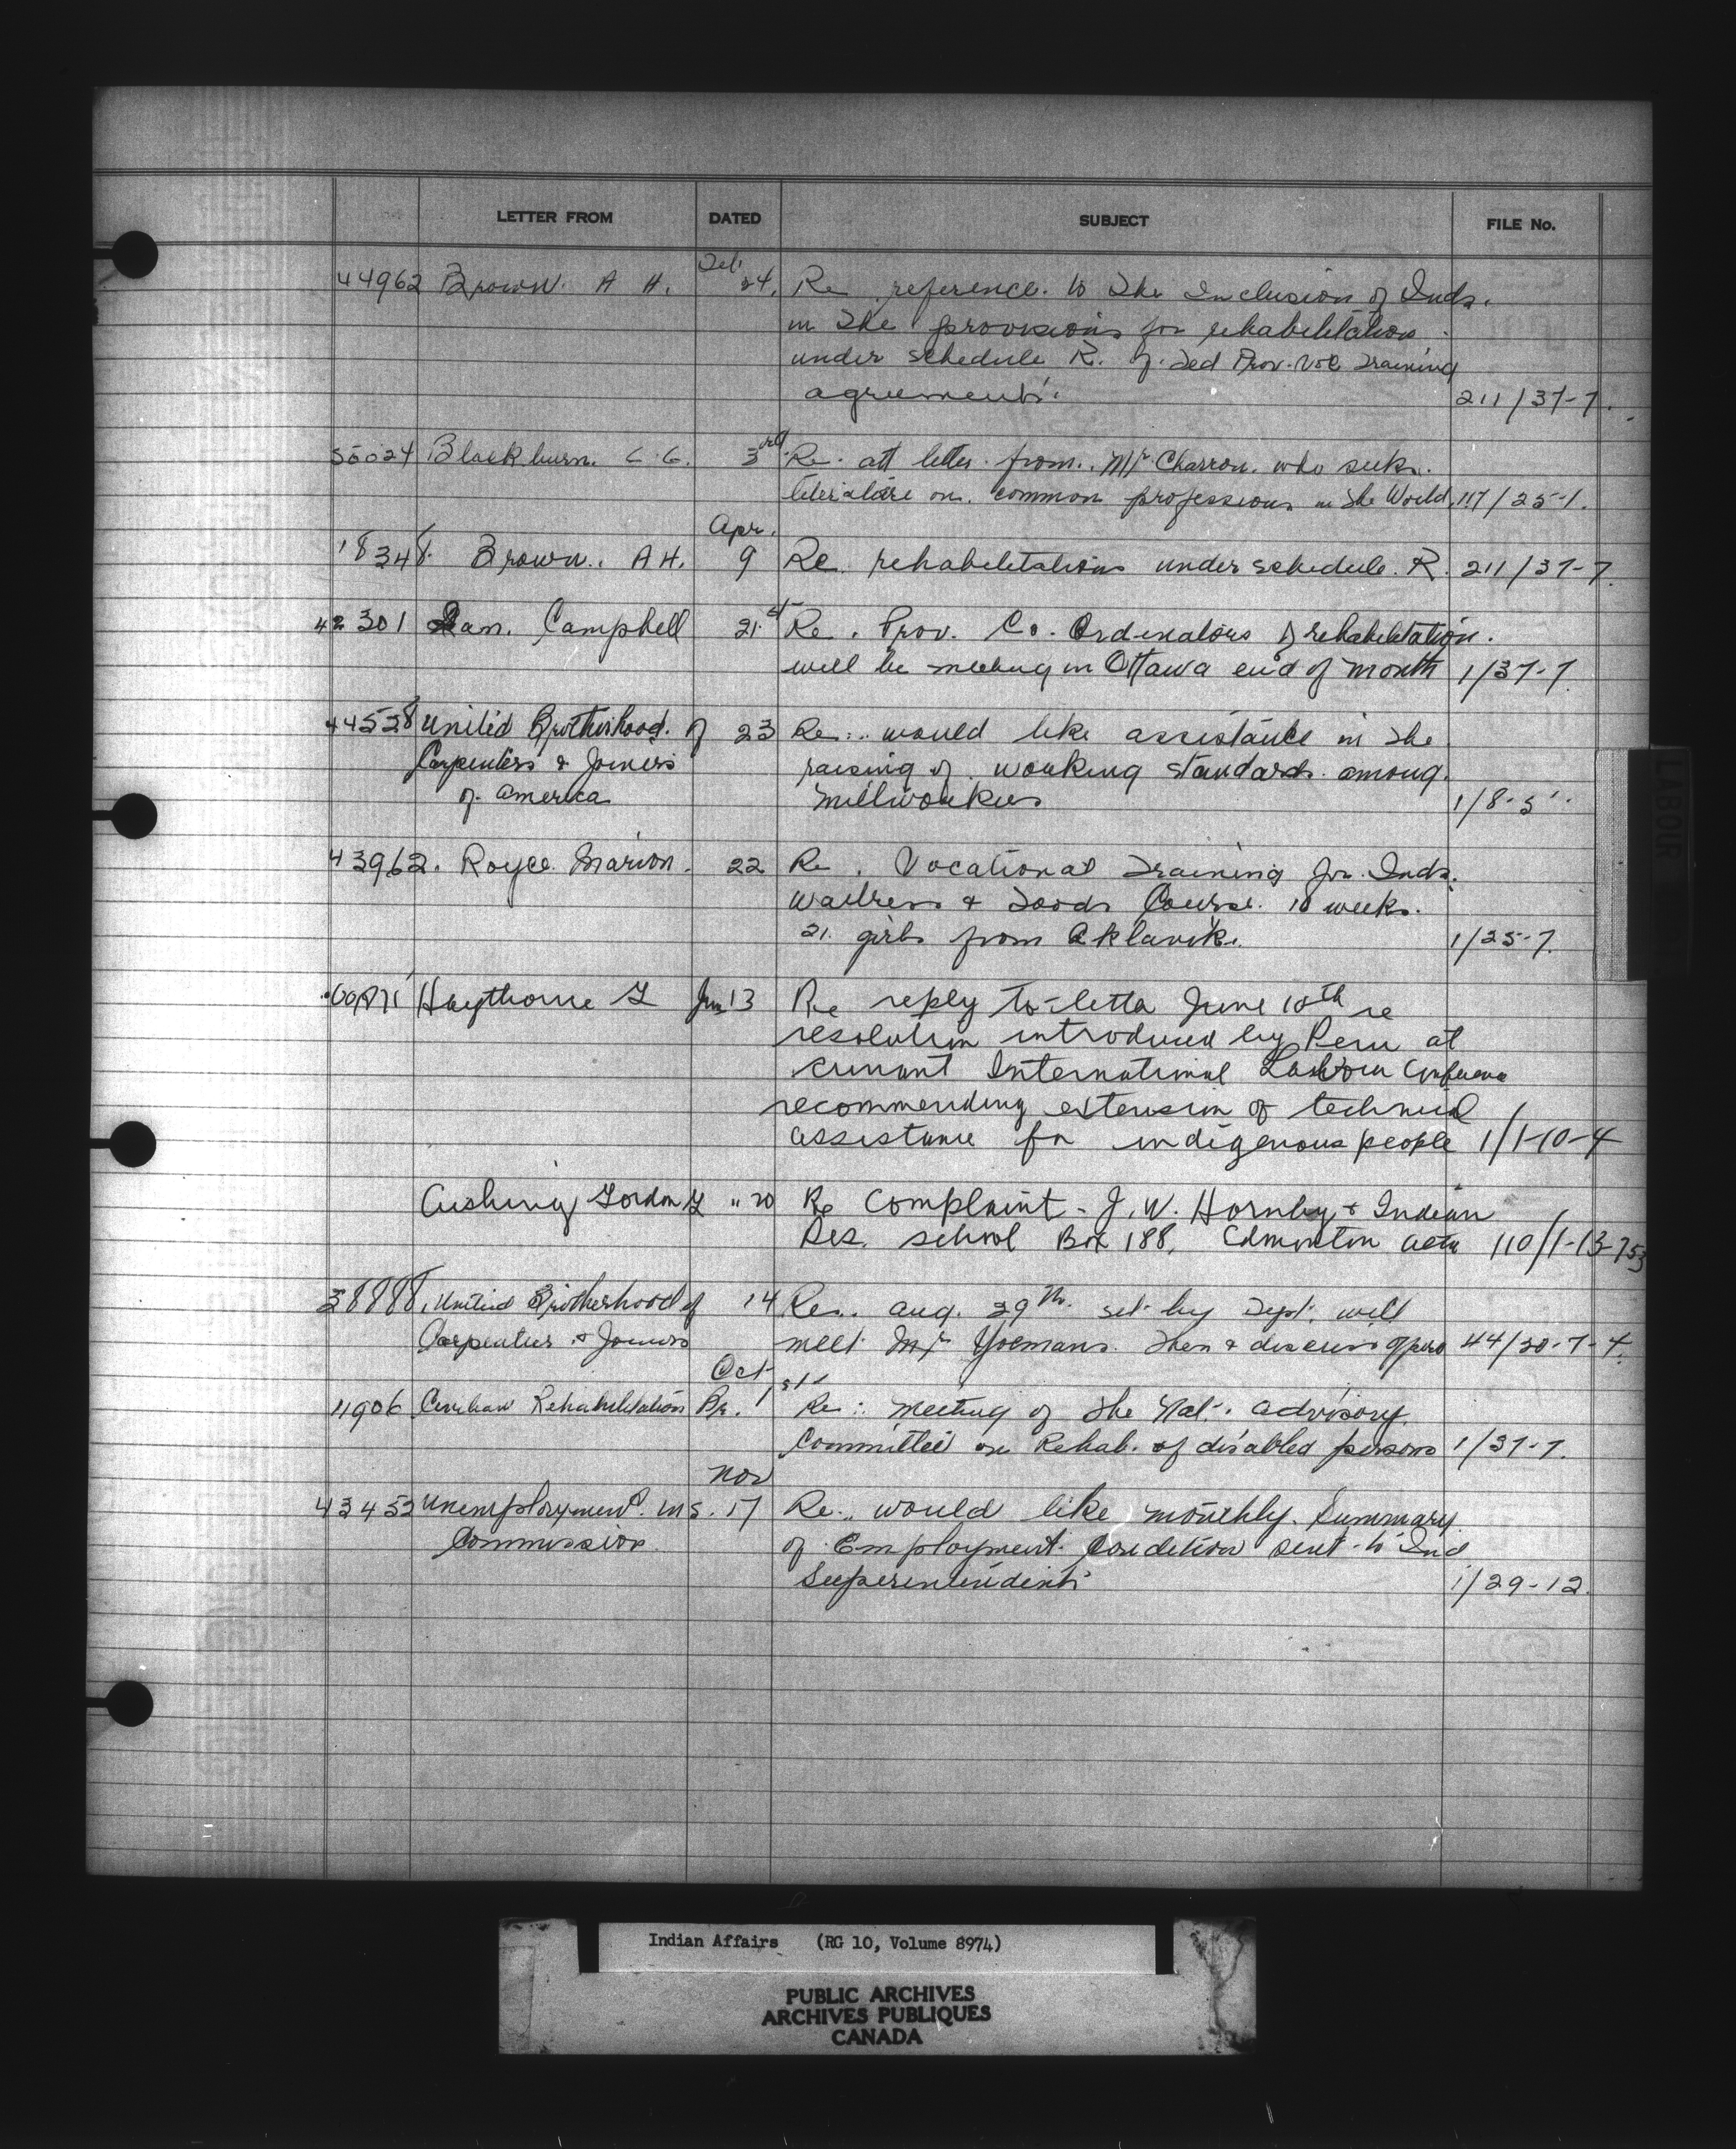 LETTER FROM DATED SUBJECT FILE No.
Feb.
44962 Brown. A H. 24. Re reference. to the Inclusion of Inds.
in the provisions for rehabilitation.
under schedule R. of. Fed Prov. Voc Training
agreements. 211/37-7.
55024 Blackburn. C. G. 3rd Re. att letter from. Mr. Charron. who seeks.
literature on. common professions in the World. 117/25-1.
Apr.
18348. Brown.. A H. 9 Re. rehabilitations under schedule. R. 211/37-7.
42301 Ian. Campbell 21st Re. Prov. Co. Ordinators of rehabilitation.
will be meeting in Ottawa end of month 1/37-7.
44528 United Brotherhood. of 23 Re:.. would like assistance in the
Carpenters & Joiners raising of. working standards. among.
of. America millworkers 1/8-5
43962. Royce. Marion. 22 Re. Vocational Training for. Inds.
Waitress & Foods Course. 10 weeks.
21. girls from Aklavik. 1/25-7.
Haythorne G Jun 13 Re reply to letter June 10th re
resolution introduced by Peru at
current International Labour Conference
recommending extension of technical
assistance for indigenous people 1/1-10-4
Cushing Gordon G " 20 Re Complaint - J. W. Hornby & Indian
Res. school Box 188, Edmonton Alta 110/1-13-753
38888. United Brotherhood of 14 Re.. Aug. 29th. set by Dept. will
Carpenters & Joiners meet Mr Yoemans. then & discuss 44/30-7-4.
Oct
11906 Civilian Rehabilitation Br. 1st Re:. meeting of the Nat. advisory.
Committee on Rehab. of disabled persons 1/37-7.
Nov
43453 Unemployment. Ins. 17 Re.. would like monthly. Summary
Commission. of Employment. Condition sent to Ind
Superintendents 1/29-12.
LABOUR
Indian Affairs (RG 10, Volume 8974)
PUBLIC ARCHIVES
ARCHIVES PUBLIQUES
CANADA